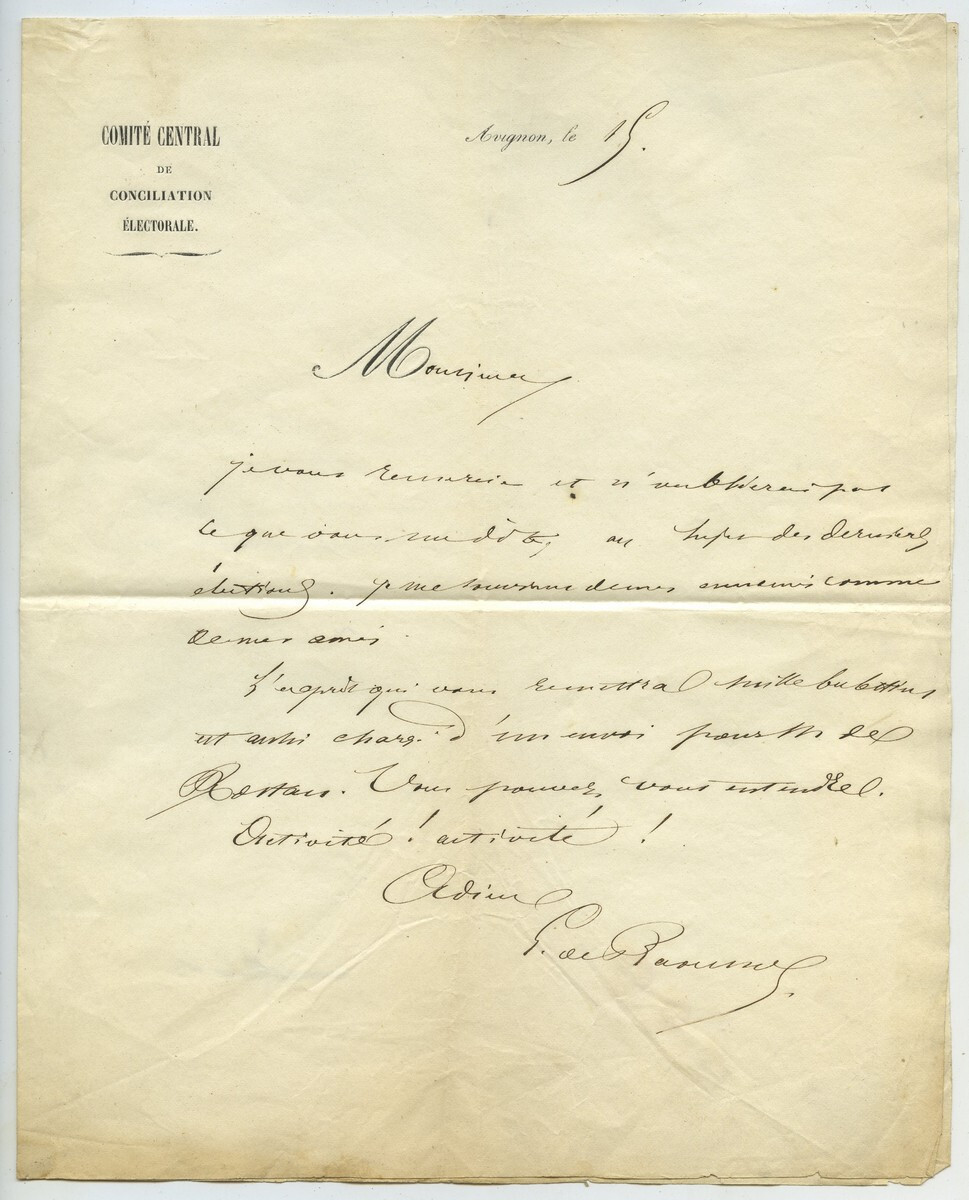 COMITÉ CENTRAL
DE
CONCILIATION
ÉLECTORALE.
Avignon, le 15.
Monsieur
je vous remercie et n'oublierai pas
ce que vous me dites au sujet des dernières
élections. je me souviens de mes ennemis comme
de mes amis
L'exprès qui vous remettra mille bulletins
est aussi chargé d'un envoi pour M de
Vous pouvez vous entendre.
Activité ! activité !
Adieu
G. de Raousset